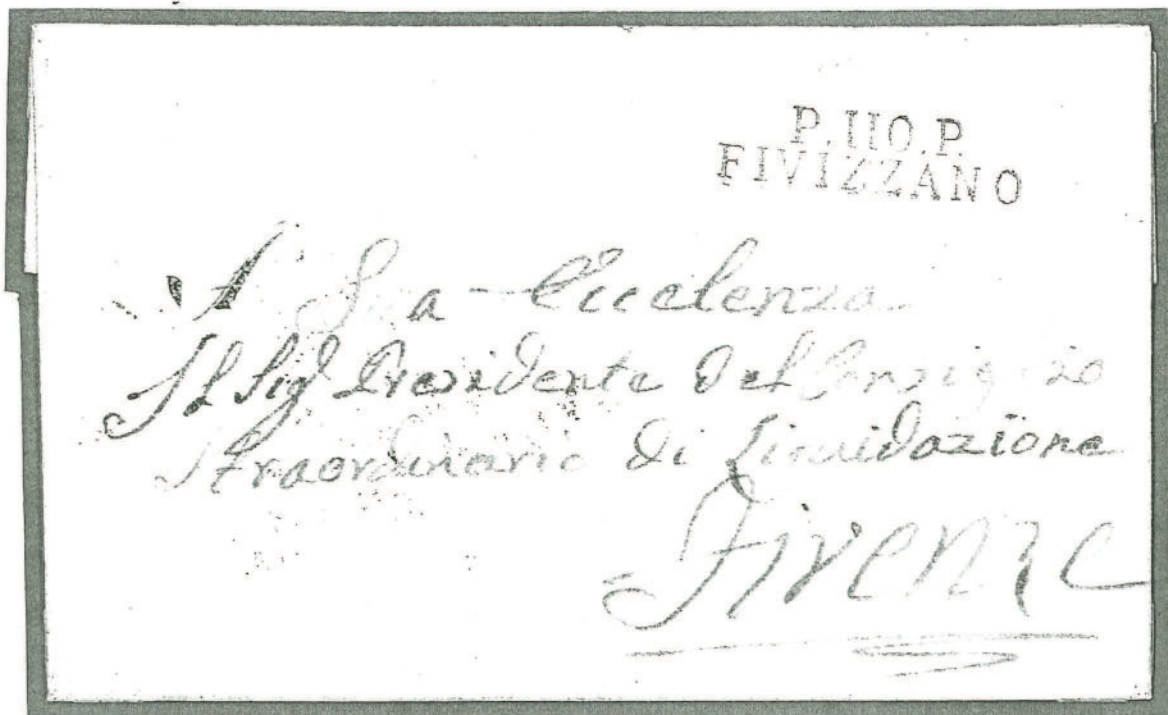 P.110.P.
FIVIZZANO
A Sua Eccelenza
Il Sig Presidente del Consiglio
Straordinario di Liquidazione
Firenze